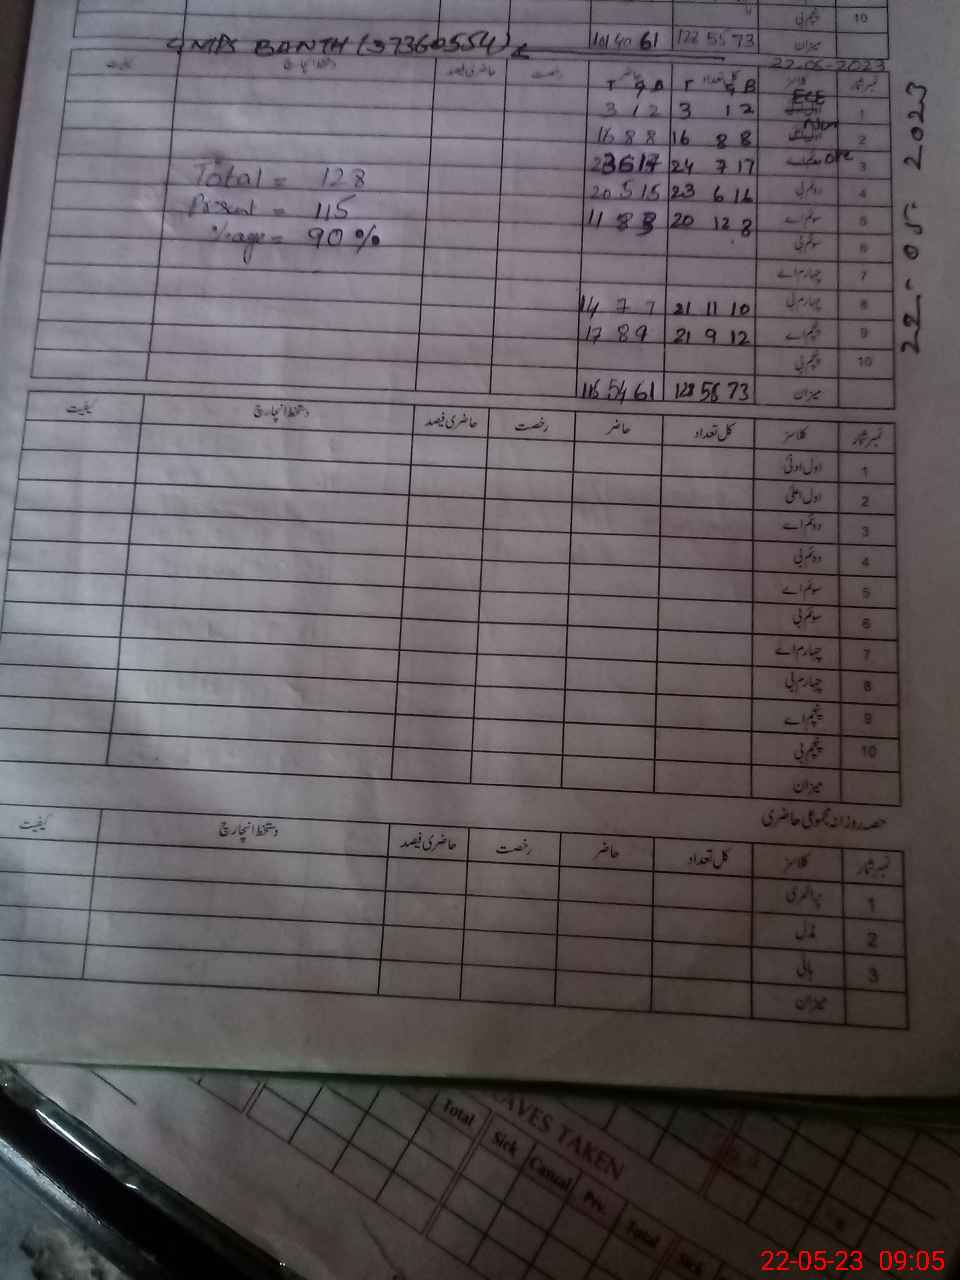 پنجم بی 10
میزان 128 55 73 101 40 61
GMPS BANTH (37360554)
22-05-2023
نمبر شمار کلاسز کل تعداد حاضر رخصت حاضری فیصد دستخط انچارج کیفیت
T G B T G B
1 ECE 3 1 2 3 1 2
2 16 8 8 16 8 8
3 One 24 7 17 23 6 17
4 دوئم بی 23 6 16 20 5 15
5 سوئم اے 20 12 8 11 8 3
6 سوئم بی
7 چہارم اے
8 چہارم بی 21 11 10 14 7 7
9 پنجم اے 21 9 12 17 8 9
10 پنجم بی
میزان 128 55 73 115 54 61
Total = 128
Present = 115
%age = 90%
22-05-2023
نمبر شمار کلاسز کل تعداد حاضر رخصت حاضری فیصد دستخط انچارج کیفیت
1 اول ادنیٰ
2 اول اعلیٰ
3 دوئم اے
4 دوئم بی
5 سوئم اے
6 سوئم بی
7 چہارم اے
8 چہارم بی
9 پنجم اے
10 پنجم بی
میزان
حصہ روزانہ مجموعی حاضری
نمبر شمار کلاسز کل تعداد حاضر رخصت حاضری فیصد دستخط انچارج کیفیت
1 پرائمری
2 مڈل
3 ہائی
میزان
LEAVES TAKEN
Total Sick Casual Prv. Total Sick
22-05-23 09:05